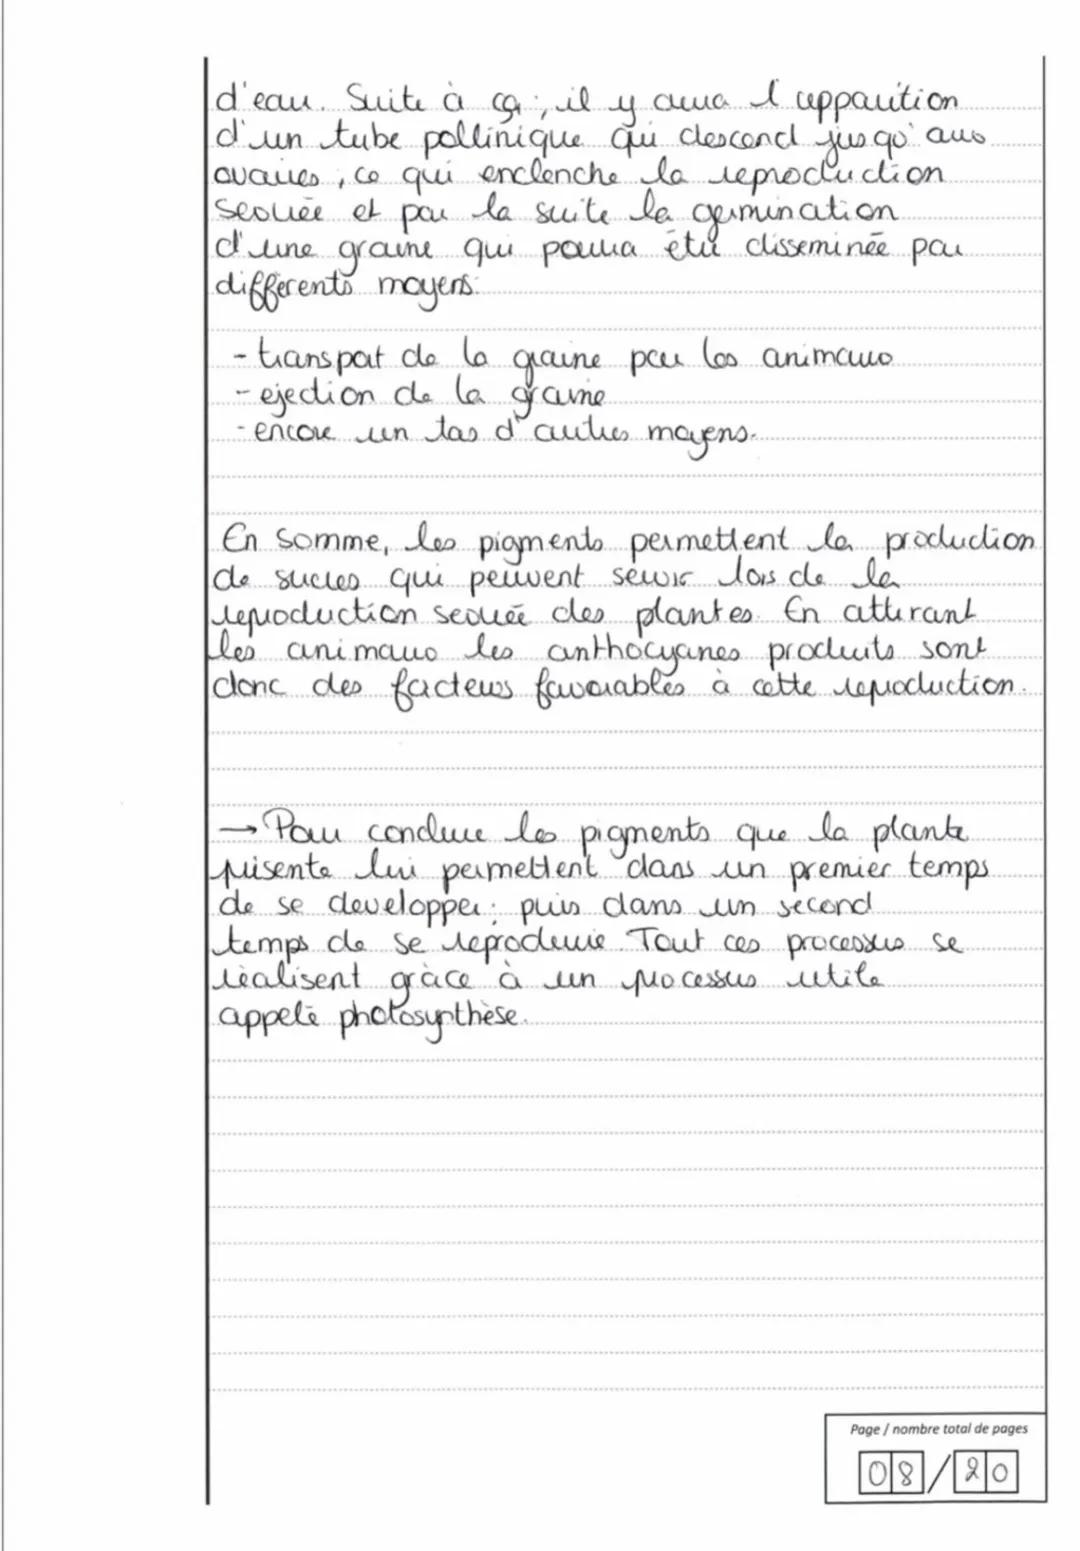 d'eau. Suite à ça, il y aura l'apparition
d'un tube pollinique qui descend jusqu'aux
ovaires, ce qui enclenche la reproduction
sexuée et par la suite la germination
d'une graine qui pourra être disseminée par
différents moyens:
- transport de la graine par les animaux
- ejection de la graine
- encore un tas d'autres moyens.
En somme, les pigments permettent la production
de sucres qui peuvent servir lors de la
reproduction sexuée des plantes. En attirant
les animaux les anthocyanes produits sont
donc des facteurs favorables à cette reproduction.
→ Pour conclure les pigments que la plante
présente lui permettent dans un premier temps
de se developper; puis dans un second
temps de se reproduire. Tout ces processus se
réalisent grâce à un processus utile
appelé photosynthèse.
Page / nombre total de pages
08/20